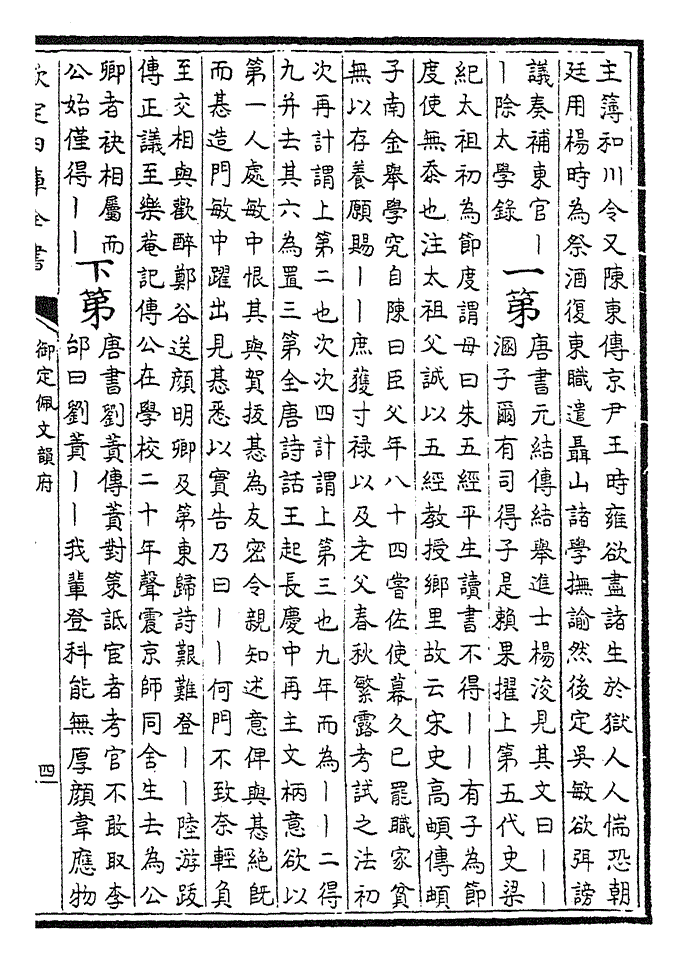 主簿和川令又陳東傳京尹王時雍欲盡諸生於獄人人惴恐朝
廷用楊時為祭酒復東職遣聶山諸學撫諭然後定吳敏欲弭謗
議奏補東官丨
丨除太學錄
一第
唐書元結傳結舉進士楊浚見其文曰丨丨
溷子爾有司得子是賴果擢上第五代史梁
紀太祖初為節度謂母曰朱五經平生讀書不得丨丨有子為節
度使無忝也注太祖父誠以五經教授鄉里故云宋史高頔傳頔
子南金舉學究自陳曰臣父年八十四嘗佐使幕久已罷職家貧
無以存養願賜丨丨庶獲寸祿以及老父春秋繁露考試之法初
次再計謂上第二也次次四計謂上第三也九年而為丨丨二得
九并去其六為置三第全唐詩話王起長慶中再主文柄意欲以
第一人處敏中恨其與賀拔惎為友密令親知述意俾與惎絶旣
而惎造門敏中躍出見惎悉以實告乃曰丨丨何門不致奈輕負
至交相與歡醉鄭谷送顔明卿及第東歸詩艱難登丨丨陸游跋
傳正議至樂菴記傳公在學校二十年聲震京師同舍生去為公
卿者袂相屬而
公始僅得丨丨
下第
唐書劉蕡傳蕡對策詆宦者考官不敢取李
邰曰劉蕡丨丨我輩登科能無厚顔韋應物
欽定四庫全書
御定佩文韻府
四